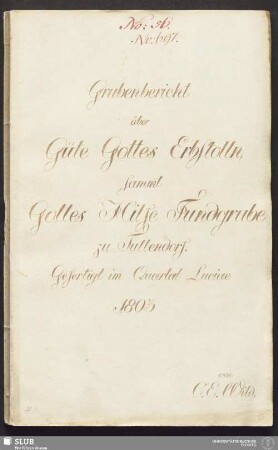 No: 56.
No: 697.
Grubenbericht
über
Güte Gottes Erbstolln,
sammt
Gottes Hilfe Fundgrube
zu Tuttendorf.
Gefertigt im Quartal Luciae
1805
von
C. E. Wild,
SLUB